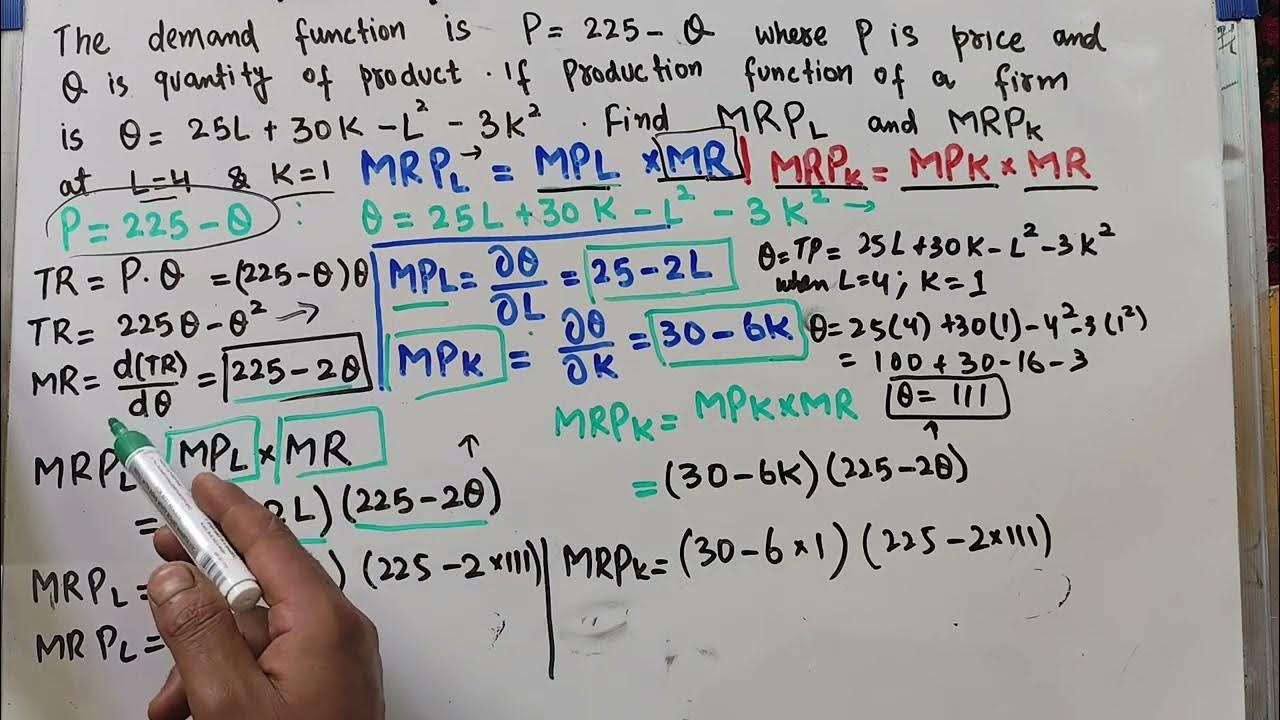 The demand function is P = 225 - Q where P is price and
Q is quantity of product. If Production function of a firm
is Q = 25L + 30K - L² - 3K². Find MRP_L and MRP_K
at L=4 & K=1
MRP_L → = MPL × MR | MRP_K = MPK × MR
P = 225 - Q : Q = 25L + 30K - L² - 3K² →
TR = P.Q = (225-Q)Q
TR = 225Q - Q² →
MR = d(TR)/dQ = 225 - 2Q
MPL = ∂Q/∂L = 25 - 2L
MPK = ∂Q/∂K = 30 - 6K
Q = TP = 25L + 30K - L² - 3K²
when L=4; K=1
Q = 25(4) + 30(1) - 4² - 3(1²)
= 100 + 30 - 16 - 3
Q = 111
↑
MRP_L MPL × MR
↑
= 2L) (225 - 2Q)
MRP_L = ) (225 - 2×111)
MRP_L =
MRP_K = MPK × MR
= (30 - 6K) (225 - 2Q)
MRP_K = (30 - 6×1) (225 - 2×111)